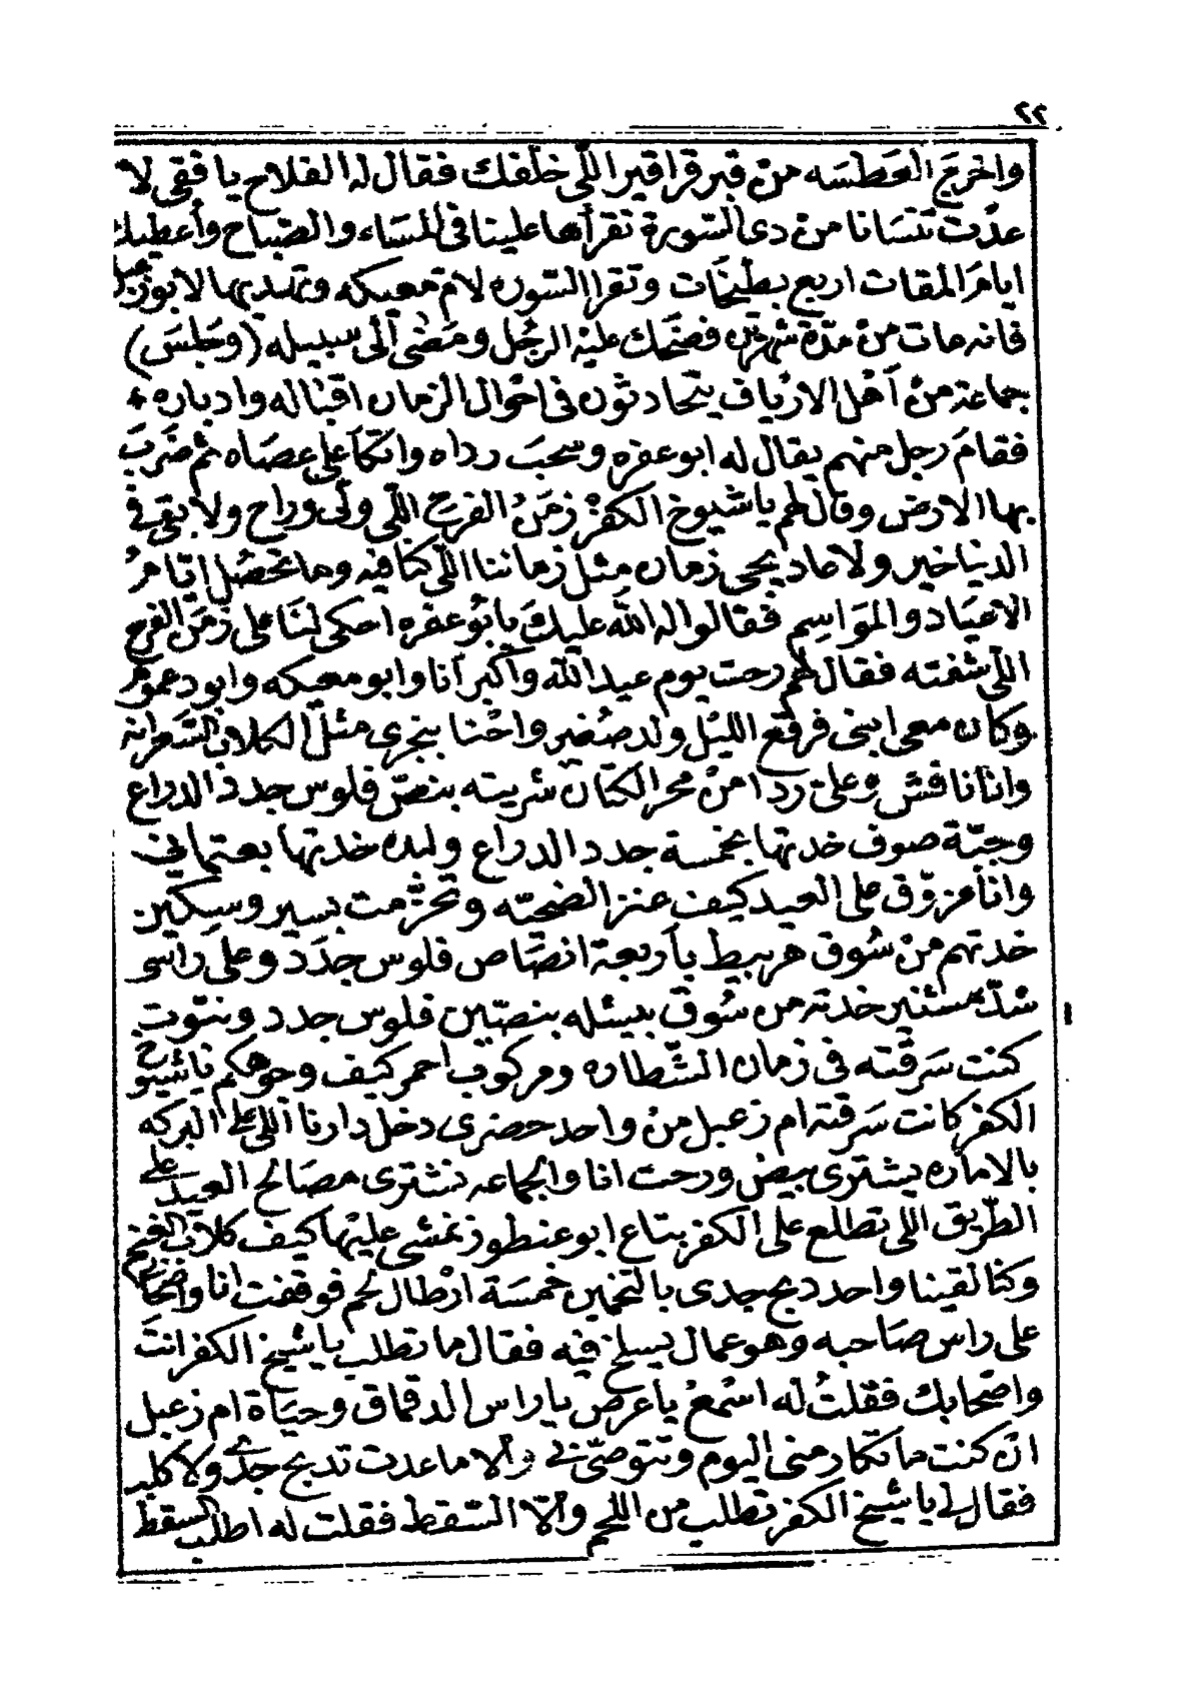 ٢٢
واخرج العطسه من قبر قراقير اللى خلفك فقال له الفلاح يا فقى لا
عدت تنسانا من دى السورة تقرأها علينا فى المساء والصباح وأعطيك
ايام المقات اربع بطيخات وتقرا السوره لام معيكه وتهديها لابو زعبل
فانه مات من مدة شهرين فضحك عليه الرجل ومضى الى سبيله (وجلس)
جماعة من اهل الارياف يتحادثون فى احوال الزمان اقباله وادباره
فقام رجل منهم يقال له ابو عفره وسحب رداه واتكأ على عصاه ثم ضرب
بها الارض وقال لهم يا شيوخ الكفر زمن الفرح اللى ولى وراح ولا بقى فى
الدنيا خير ولا عاد يجى زمان مثل زماننا اللى كنا فيه وما تحصل ايام
الاعياد والمواسم فقالوا له الله عليك يا بو عفره احكى لنا على زمن الفرح
اللى شفته فقال لهم رحت يوم عيد الله وأكبر انا وابو معيكه وابو دعموم
وكان معى ابنى فرقع الليل ولد صغير واحنا بنجرى مثل الكلاب السعرانه
وانا نافش وعلى ردا من محر الكتان شريته بنص فلوس جدد الدراع
وجبة صوف خدتها بخمسة جدد الدراع ولبده خدتها بعتمانى
وانا مزوق على العيد كيف عنز الضحيه وتحزمت بسير وسكين
خدتهم من سوق هربيط بأربعة انصاص فلوس جدد وعلى راسى
شد مسنير خدته من سوق بيشله بنصين فلوس جدد وبتوت
كنت سرقته فى زمان الشطاره ومركوب احمر كيف وجوهكم يا شيوخ
الكفر كانت سرقته ام زعبل من واحد حضرى دخل دارنا اللى على البركه
بالاماره يشترى بيض ورحت انا والجماعه نشترى مصالح العيد على
الطريق اللى تطلع على الكفر بتاع ابو عنطوز نمشى عليها كيف كلاب الغنم
وكنا لقينا واحد دبح جدى بالتخمين خمسة ارطال لحم فوقفت انا واصحابى
على راس صاحبه وهو عمال يسلخ فيه فقال ما تطلب يا شيخ الكفر انت
واصحابك فقلت له اسمع يا عرص يا راس الدقماق وحياة ام زعبل
ان كنت ما تكارمنى اليوم وتتوصى بى والا ما عدت تدبح جدى ولا كلب
فقال لى يا شيخ الكفر تطلب من اللحم والا السقط فقلت له اطلب السقط